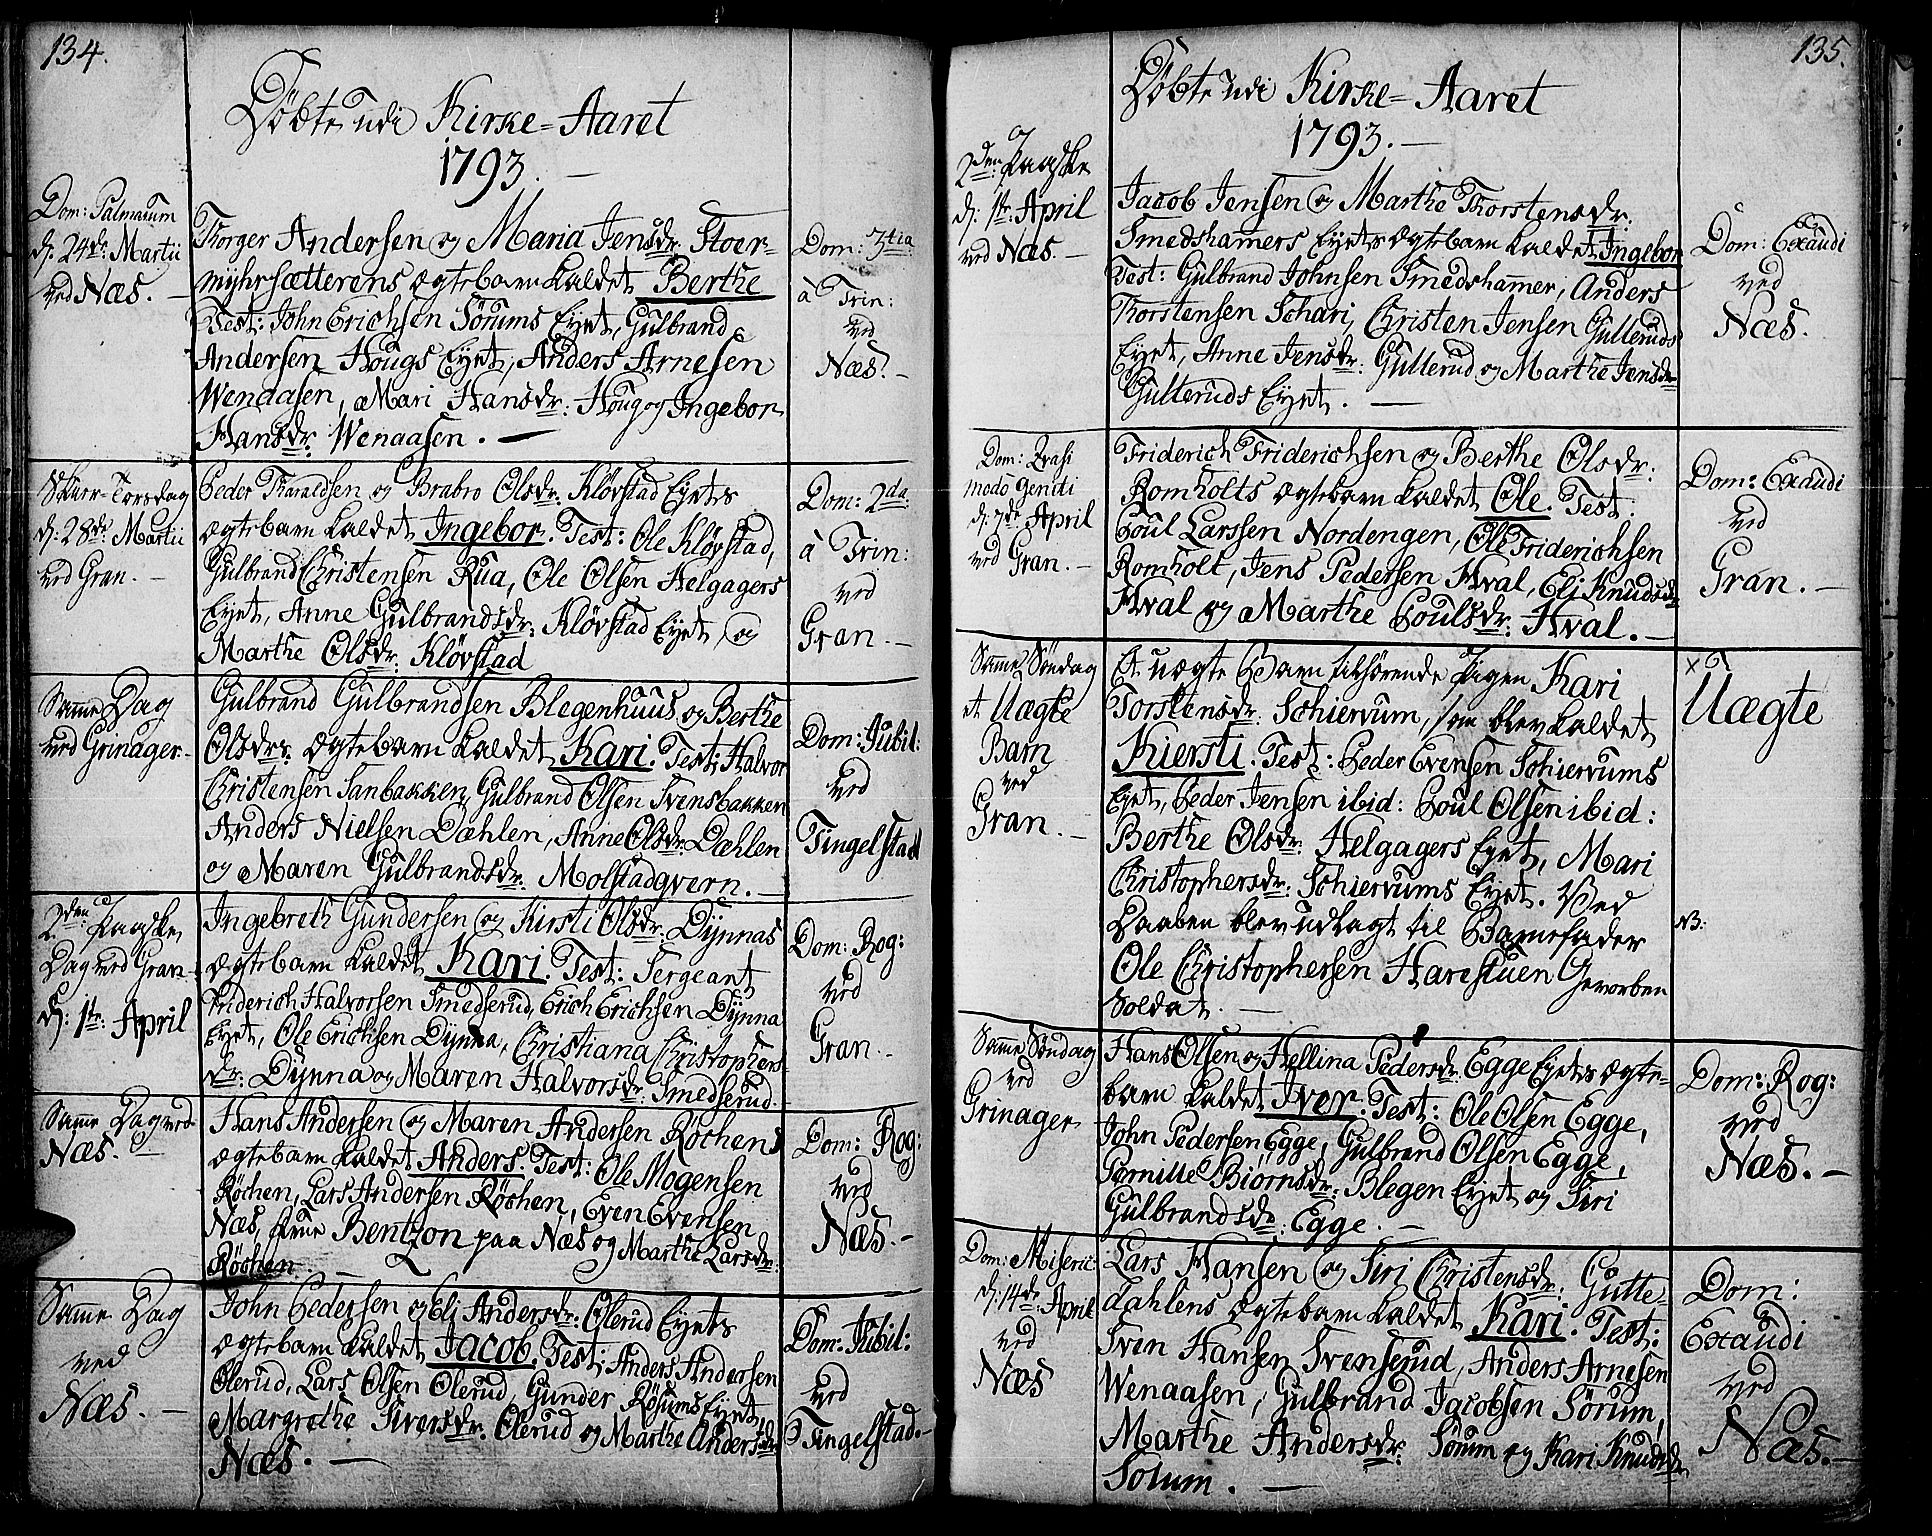 134.
Döbte udi Kirke=Aaret
1793. —
Dom: Palmarum
d: 24de Martii
ved Næs. —
Thorger Andersen og Maria Jensdr: Stoer-
myhrsætterens ægtebarn kaldet Berthe
Test: John Erichsen Sörums Eyet, Gulbrand
Andersen Hougs Eyet, Anders Arnesen
Wenaasen, Mari Hansdr: Houg og Ingebor
Hansdr: Wenaasen. —
Dom: 3tia
à Trin:
ved
Næs. —
Skiær-Torsdag
d: 28de Martii
ved Gran. —
Peder Haraldsen og Brabro Olsdr: Klövstad Eyets
ægtebarn kaldet Ingebor. Test: Ole Klövstad,
Gulbrand Christensen Rua, Ole Olsen Helgagers
Eyet, Anne Gulbrandsdr: Klövstad Eyet og
Marthe Olsdr: Klövstad
Dom: 2da
à Trin:
ved
Gran. —
Samme Dag
ved Grinager. —
Gulbrand Gulbrandsen Blegenhuus og Berthe
Olsdr: ægtebarn kaldet Kari. Test: Halvor
Christensen Sanbakken, Gulbrand Olsen Svensbakken
Anders Nielsen Dæhlen, Anne Olsdr: Dæhlen
og Maren Gulbrandsdr: Molstadqvern. —
Dom: Jubil:
ved
Tingelstad
2den Paaske
Dag ved Gran
d: 1ste April
Ingebreth Gundersen og Kirsti Olsdr: Dynnas
ægtebarn kaldet Kari. Test: Sergeant
Friderich Halvorsen Smedserud, Erich Erichsen Dynna
Eyet, Ole Erichsen Dynna, Christiana Christophers-
dr: Dynna og Maren Halvorsdr: Smedserud.
Dom: Rog:
ved
Gran. —
Samme Dag ved
Næs. —
Hans Andersen og Maren Andersen Röchens
ægtebarn kaldet Anders. Test: Ole Mogensen
Röchen, Lars Andersen Röchen, Even Evensen
Næs, Bentzon paa Næs og Marthe Larsdr:
Röchen. —
Dom: Rog:
ved
Næs. —
Samme Dag
ved
Næs. —
John Pedersen og Eli Andersdr: Ölerud Eyets
ægtebarn kaldet Jacob. Test: Anders Andersen
Ölerud, Lars Olsen Ölerud, Gunder Rösums Eyet,
Margrethe Siversdr: Ölerud og Marthe Andersdr
Næs. —
Dom: Jubil:
ved
Tingelstad. —
135.
Döbte udi Kirke=Aaret
1793. —
2den Paaske
d: 1ste April
ved Næs. —
Jacob Jensen og Marthe Thorstensdr:
Smedshamers Eyets ægtebarn kaldet Ingebor
Test: Gulbrand Johnsen Smedshamer, Anders
Thorstensen Schari, Christen Jensen Gulleruds
Eyet, Anne Jensdr: Gullerud og Marthe Jensdr
Gulleruds Eyet. —
Dom: Exaudi
ved
Næs.
Dom: Qvasi
modo geniti
d: 7de April
ved Gran. —
Friderich Friderichsen og Berthe Olsdr:
Romholts ægtebarn kaldet Ole. Test:
Poul Larssen Nordengen, Ole Friderichsen
Romholt, Jens Pedersen Hval, Eli Knudsdr
Hval og Marthe Poulsdr: Hval. —
Dom: Exaudi
ved
Gran. —
Samme Söndag
et Uægte
Barn
ved
Gran. —
Et uægte Barn tilhörende Pigen Kari
Torstensdr: Schiervum, som blev kaldet
Kiersti. Test: Peder Evensen Schiervums
Eyet, Peder Jensen ibid: Poul Olsen ibid:
Berthe Olsdr: Helgagers Eyet, Mari
Christophersdr: Schiervums Eyet. Ved
Daaben blev udlagt til Barnefader
Ole Christophersen Harestuen Gevorben
Soldat. —
Uægte
NB.
Samme Söndag
ved
Grinager
Hans Olsen og Hellina Pedersdr: Egge Eyets ægte-
barn kaldet Iver. Test: Ole Olsen Egge,
John Pedersen Egge, Gulbrand Olsen Egge,
Pernille Biörnsdr: Blegen Eyet og Siri
Gulbrandsdr: Egge. —
Dom: Rog:
ved
Næs. —
Dom: Miseric:
d: 14de April
ved
Næs
Lars Hansen og Siri Christensdr: Gulle-
dahlens ægtebarn kaldet Kari. Test:
Sven Hansen Svenserud, Anders Arnesen
Wenaasen, Gulbrand Jacobsen Sörum,
Marthe Andersdr: Sörum og Kari Knudsdr
Solum. —
Dom:
Exaudi
ved
Næs. —